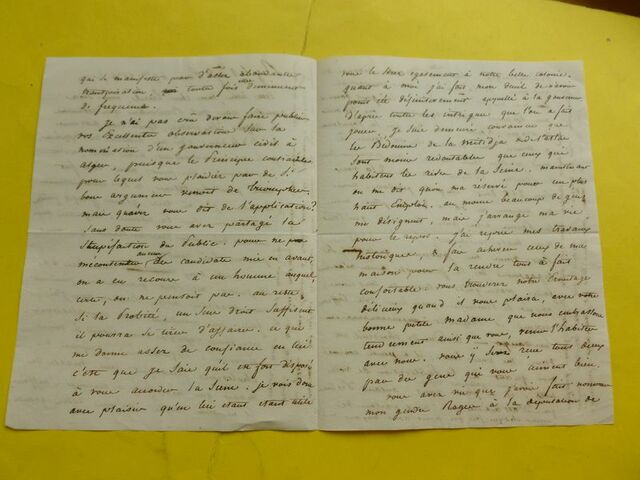 qui se manifeste par d'assez abondantes
transpiration, sans toute fois diminuer
de frequence.
Je n'ai pas crû devoir faire publier
vos Excellentes observations sur la
nomination d'un gouverneur civil à
alger, puisque le principe contraire
pour lequel vous plaidiez par de si
bons argumens venoit de triompher,
mais qu'avez vous dit de l'application?
Sans doute vous avez partagé la
Stupéfaction du Public, pour ne pas
mécontenter aucun des candidats mis en avant,
on a eu recours à un homme auquel,
certes, on ne pensoit pas. au reste
si la Probité, un sens droit suffisent
il pourra se tirer d'affaire. ce qui
me donne assez de confiance en lui
c'est que je sais qu'il est fort disposé
à vous accorder la Sienne. je vois donc
avec plaisir qu'en lui étant utile
vous le serez egalement à notre belle colonie.
quant à moi j'ai fait mon deuil de
appellé à la gouverner
D'après toutes les intrigues que l'on a fait
jouer, je suis demeuré convaincu que
les Bédouins de la mitidja & de l'atlas
sont moins redoutables que ceux qui
habitent les rives de la Seine. maintenant
on me dit qu'on me reserve pour un plus
haut Emploi. au moins beaucoup de gens
me designent, mais j'arrange ma vie
pour le repos. j'ai repris mes travaux
historiques, & fais achever ceux de ma
maison pour la rendre tout à fait
confortable. vous trouverez notre hermitage
délicieux quand il vous plaira, avec votre
bonne petite madame que nous embrassons
tendrement ainsi que vous, venir l'habiter
avec nous. vous y serez reçu tous deux
par des gens qui vous aiment bien.
vous avez vu que j'avois fait nommer
mon gendre Roger à la deputation de